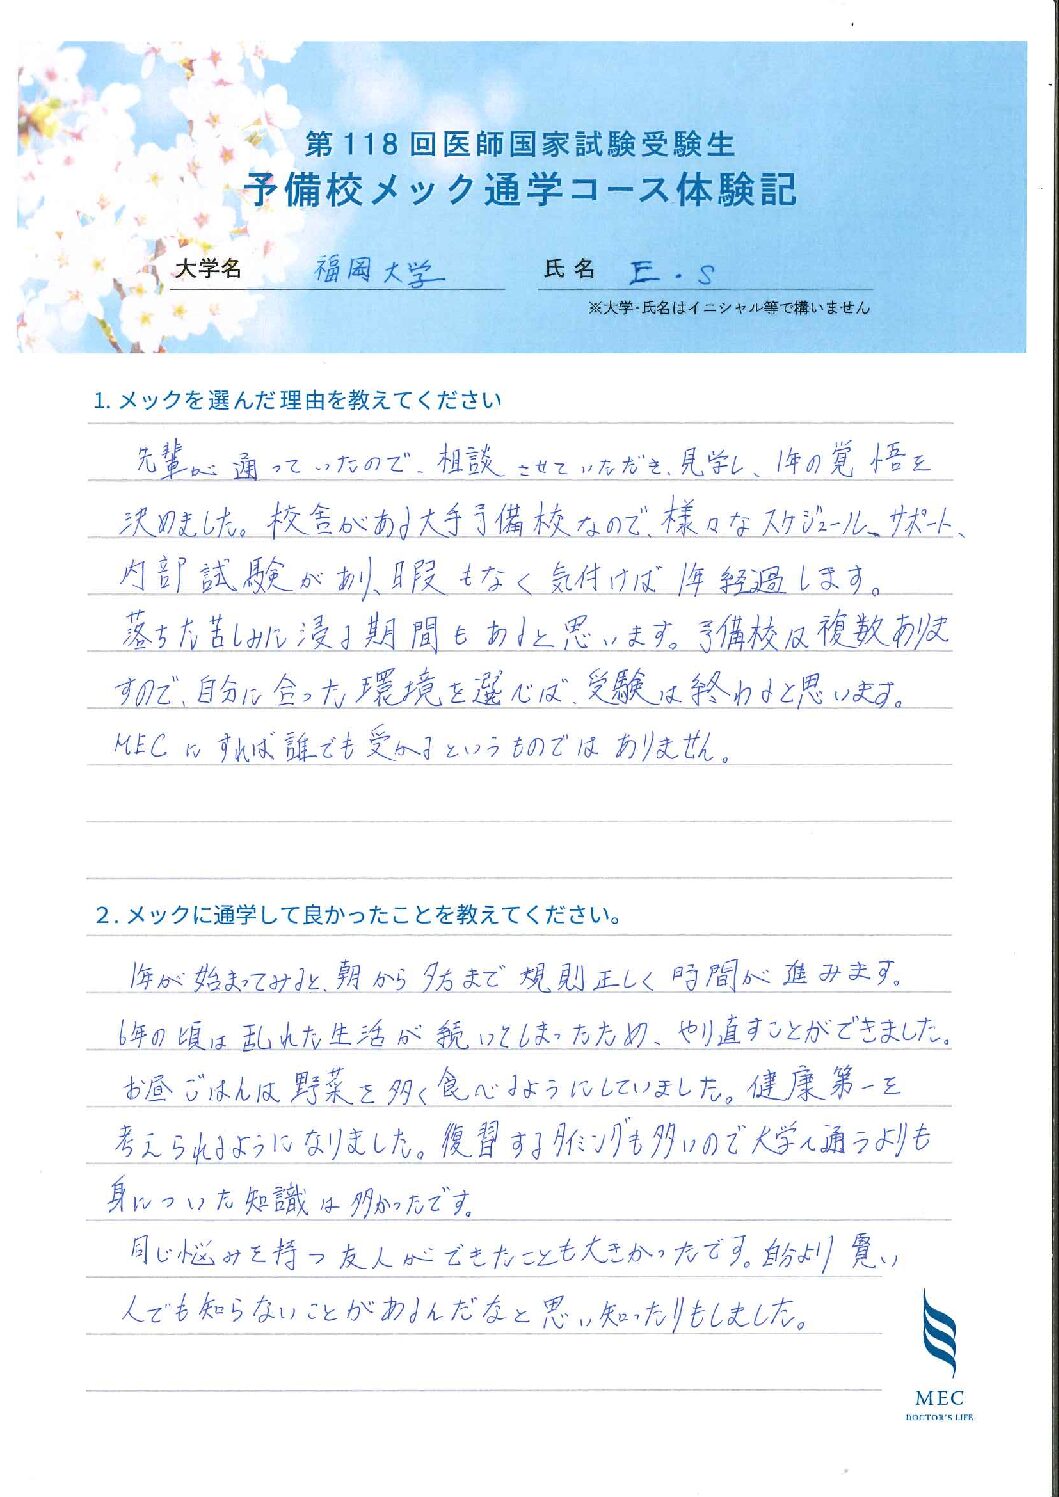 第118回医師国家試験受験生
予備校メック通学コース体験記
大学名 福岡大学 氏名 E.S
※大学・氏名はイニシャル等で構いません
1. メックを選んだ理由を教えてください
先輩が通っていたので、相談させていただき、見学し、1年の覚悟を
決めました。校舎がある大手予備校なので、様々なスケジュール、サポート、
内部試験があり、日暇もなく気付けば1年経過します。
落ちた苦しみに浸る期間もあると思います。予備校は複数ありま
すので、自分に合った環境を選べば、受験は終わると思います。
MECにすれば誰でも受かるというものではありません。
2. メックに通学して良かったことを教えてください。
1年が始まってみると、朝から夕方まで規則正しく時間が進みます。
6年の頃は乱れた生活が続いてしまったため、やり直すことができました。
お昼ごはんは野菜を多く食べるようにしていました。健康第一を
考えられるようになりました。復習するタイミングも多いので大学へ通うよりも
身についた知識は多かったです。
同じ悩みを持つ友人ができたことも大きかったです。自分より賢い
人でも知らないことがあるんだなと思い知ったりもしました。
MEC
DOCTOR'S LIFE